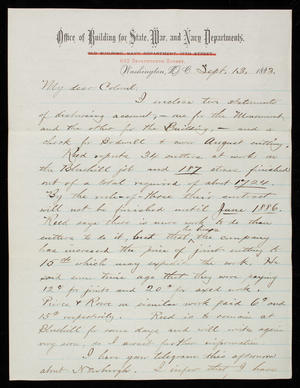 Office of Building for State, War, and Navy Departments,
OLD BUILDING, NAVY DEPARTMENT, 17TH STREET,
Washington, D.C. Sept. 13, 1883.
My dear Colonel.
I inclose two statements
of disbursing account, – one for the Monument,
and the other for the Building, – and a
check for Bodwell & Co's August cutting.
Reed reports 34 cutters at work on
the Bluehill job and 187 stones finished
out of a total required of about 1724.
By the rule-of-three their contract
will not be finished until June 1886.
Reed says there is more work to do than
cutters to do it, but that he hears the company
has increased the price of joint cutting to
15cts which may expedite the work. He
said some time ago that they were paying
12cts for joints and 20cts for axed work.
Pierce & Rowe on similar work paid 6cts and
15cts respectively. Reed is to remain at
Bluehill for some days and will write again
very soon; so I await further information.
I have your telegram this afternoon
about Newburgh. I infer that I have